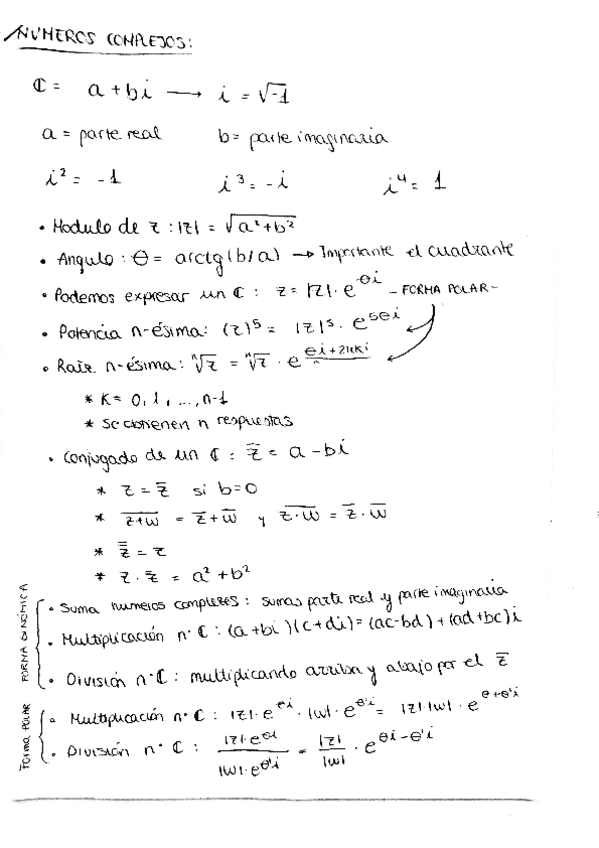 NUMEROS COMPLEJOS:
ℂ = a + bi → i = √-1
a = parte real b = parte imaginaria
i² = -1 i³ = -i i⁴ = 1
• Modulo de z : |z| = √a²+b²
• Angulo : θ = arctg(b/a) → Importante el cuadrante
• Podemos expresar un ℂ : z = |z|·e^θi - FORMA POLAR -
• Potencia n-ésima: (z)⁵ = |z|⁵ · e^5θi
• Raíz n-ésima: ⁿ√z = ⁿ√z · e^(θi+2πki)/n
* K = 0, 1, ..., n-1
* Se obtienen n respuestas
• Conjugado de un ℂ : z̅ = a - bi
* z = z̅ si b=0
* \overline{z+w} = z̅ + w̅ y \overline{z·w} = z̅ · w̅
* \overline{z̅} = z
* z · z̅ = a² + b²
FORMA BINÓMICA
• Suma numeros complejos : sumas parte real y parte imaginaria
• Multiplicación nº ℂ : (a+bi)(c+di) = (ac-bd) + (ad+bc)i
• División nº ℂ : multiplicando arriba y abajo por el z̅
Forma POLAR
• Multiplicación nº ℂ : |z|·e^θi · |w|·e^θ'i = |z|·|w|·e^θ+θ'i
• División nº ℂ : |z|·e^θi / |w|·e^θ'i = |z| / |w| · e^θi-θ'i